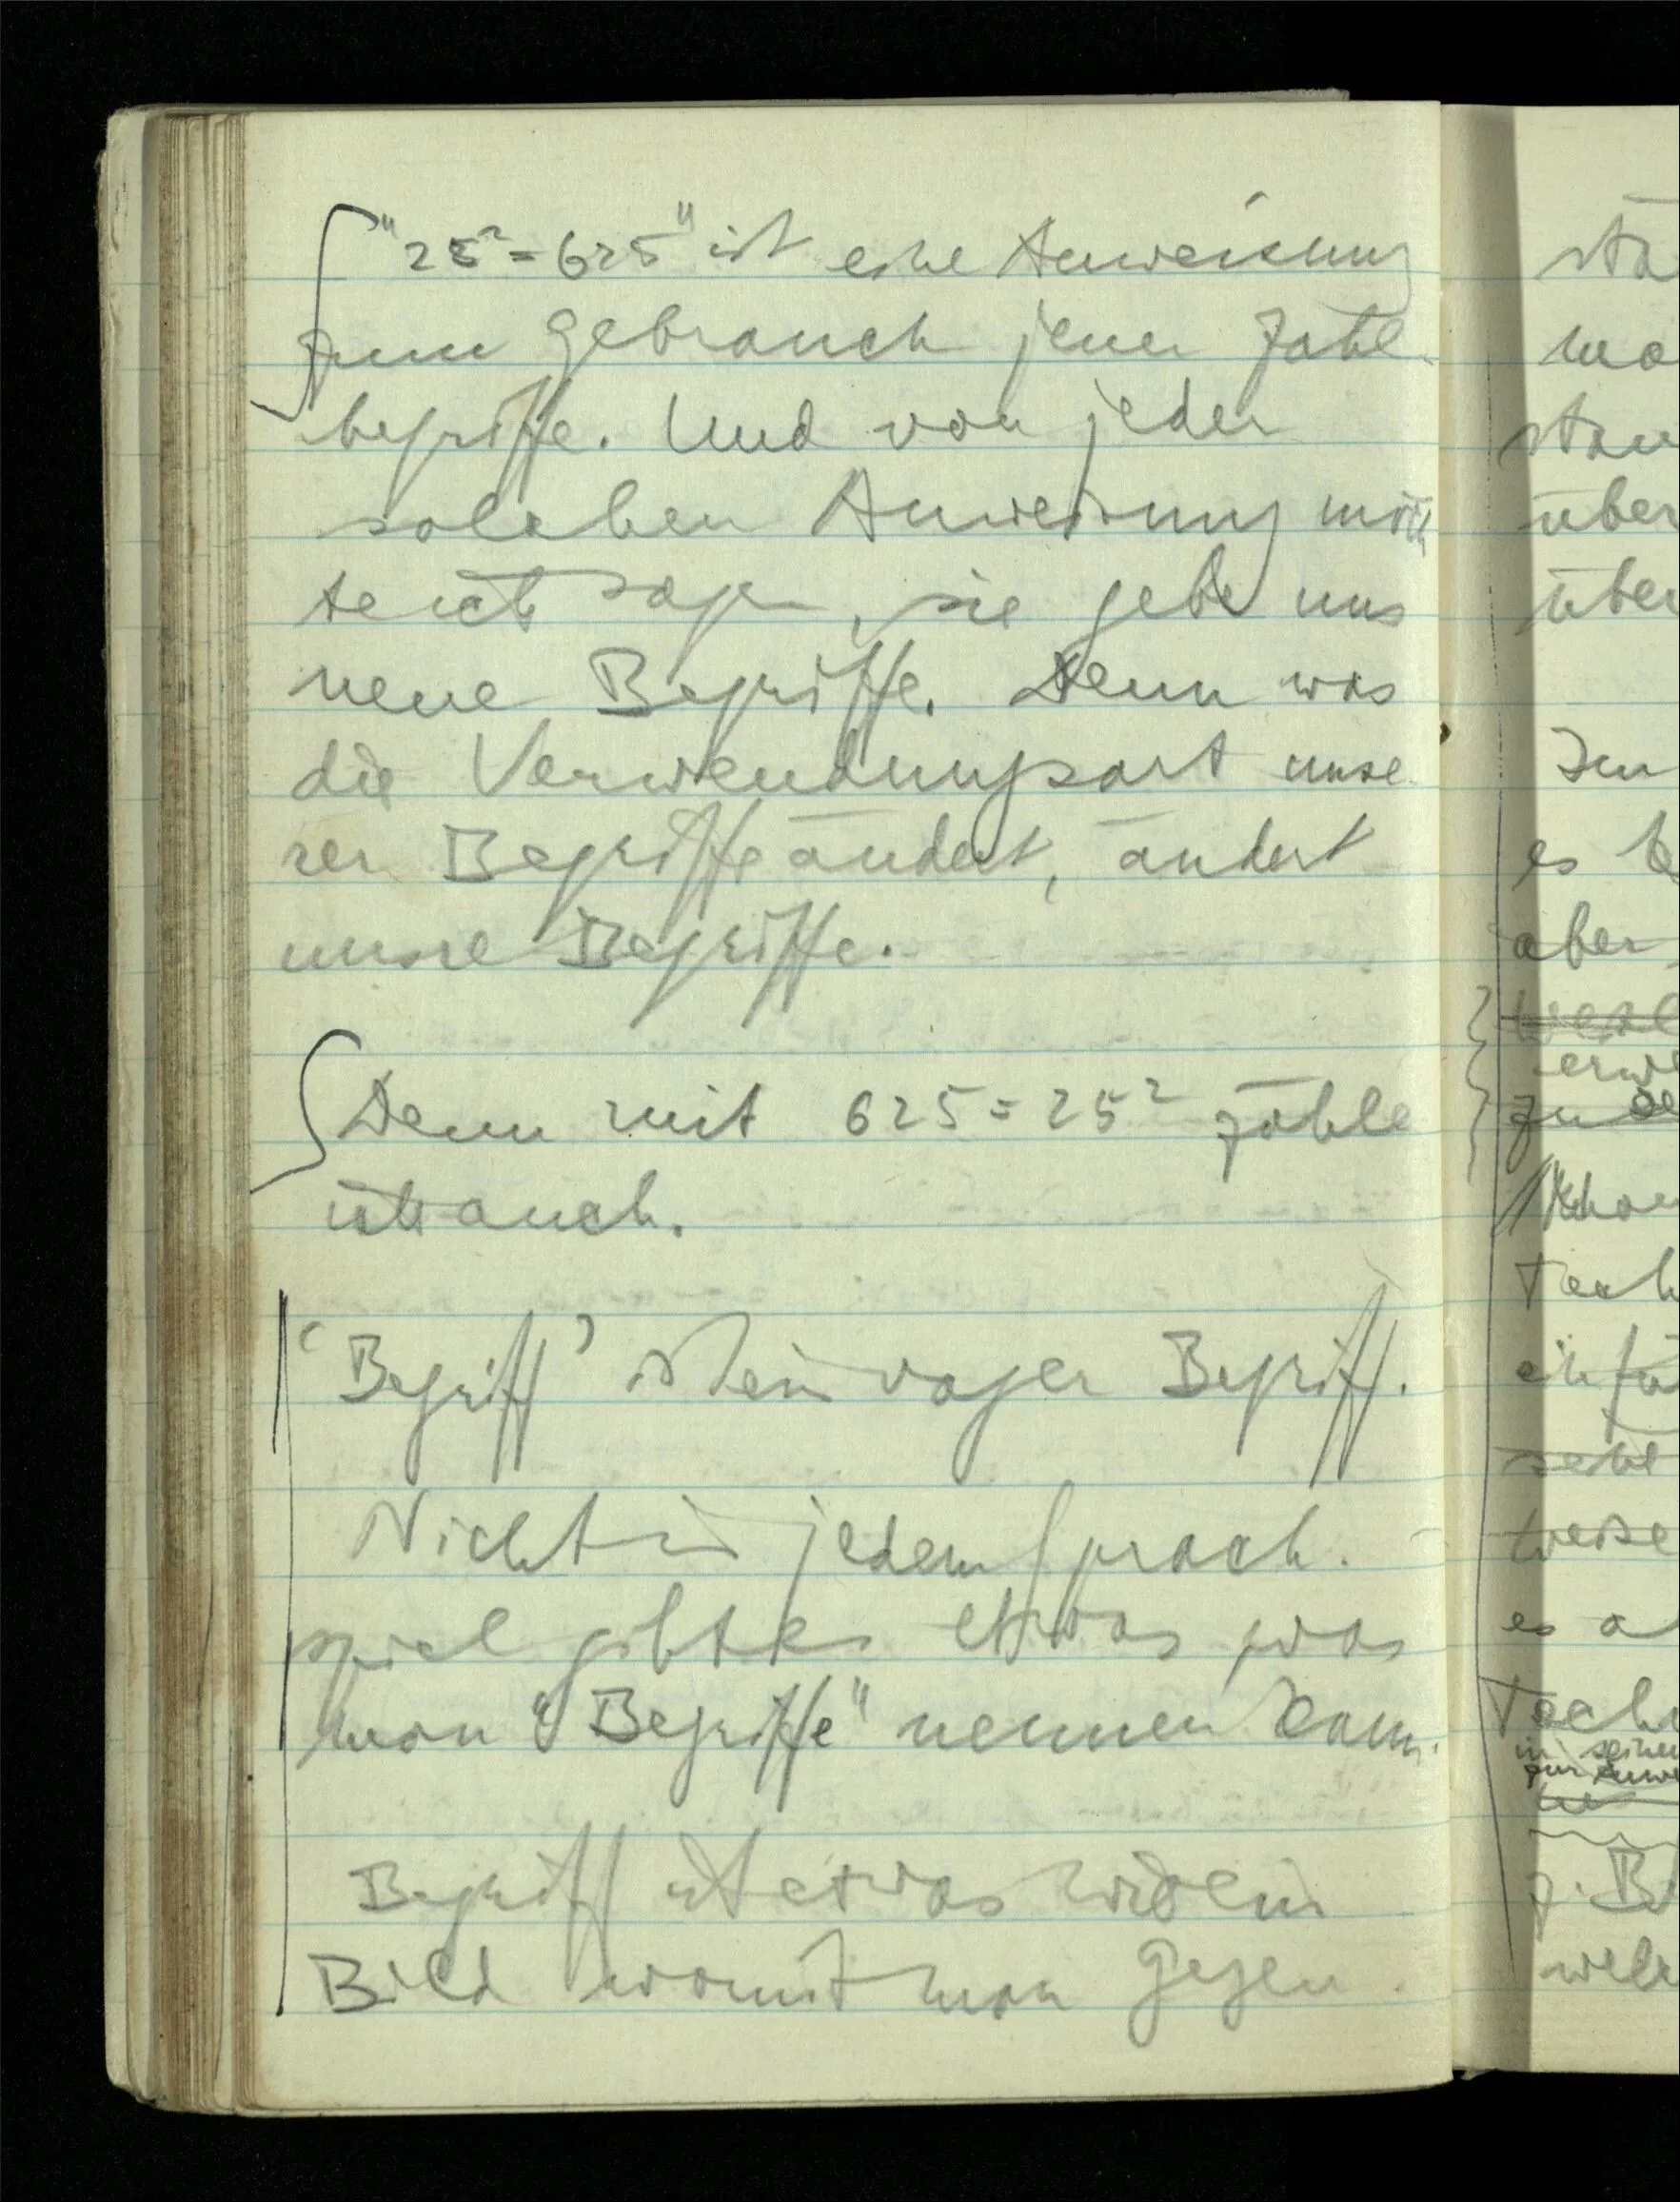 "25²=625" ist eine Anweisung
zum Gebrauch jener Zahl-
begriffe. Und von jeder
solchen Anweisung möch
te ich sagen, sie gebe uns
neue Begriffe. Denn was
die Verwendungsart unse-
rer Begriffe ändert, ändert
unsre Begriffe.
Denn mit 625=25² zähle
ich auch.
'Begriff' ist ein vager Begriff.
Nicht in jedem Sprach-
spiel gibt es etwas was
man "Begriffe" nennen kann.
Begriff ist etwas wie ein
Bild womit man Gegen
sta
ma
über
über
es
aber
erwe
zu
Tech
einfü
weise
es a
Tech
in seinen
z. B.